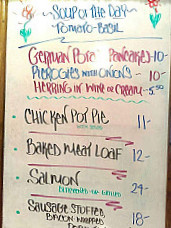 SOUP OF THE DAY
TOMATO-BASIL
GERMAN POTATO PANCAKES-10-
PIEROGIES WITH ONIONS - 10-
HERRING IN WINE OR CREAM-5.50
CHICKEN POT PIE 11-
BAKED MEAT LOAF 12-
SALMON 24-
SAUSAGE STUFFED 18-
BACON WRAPPED